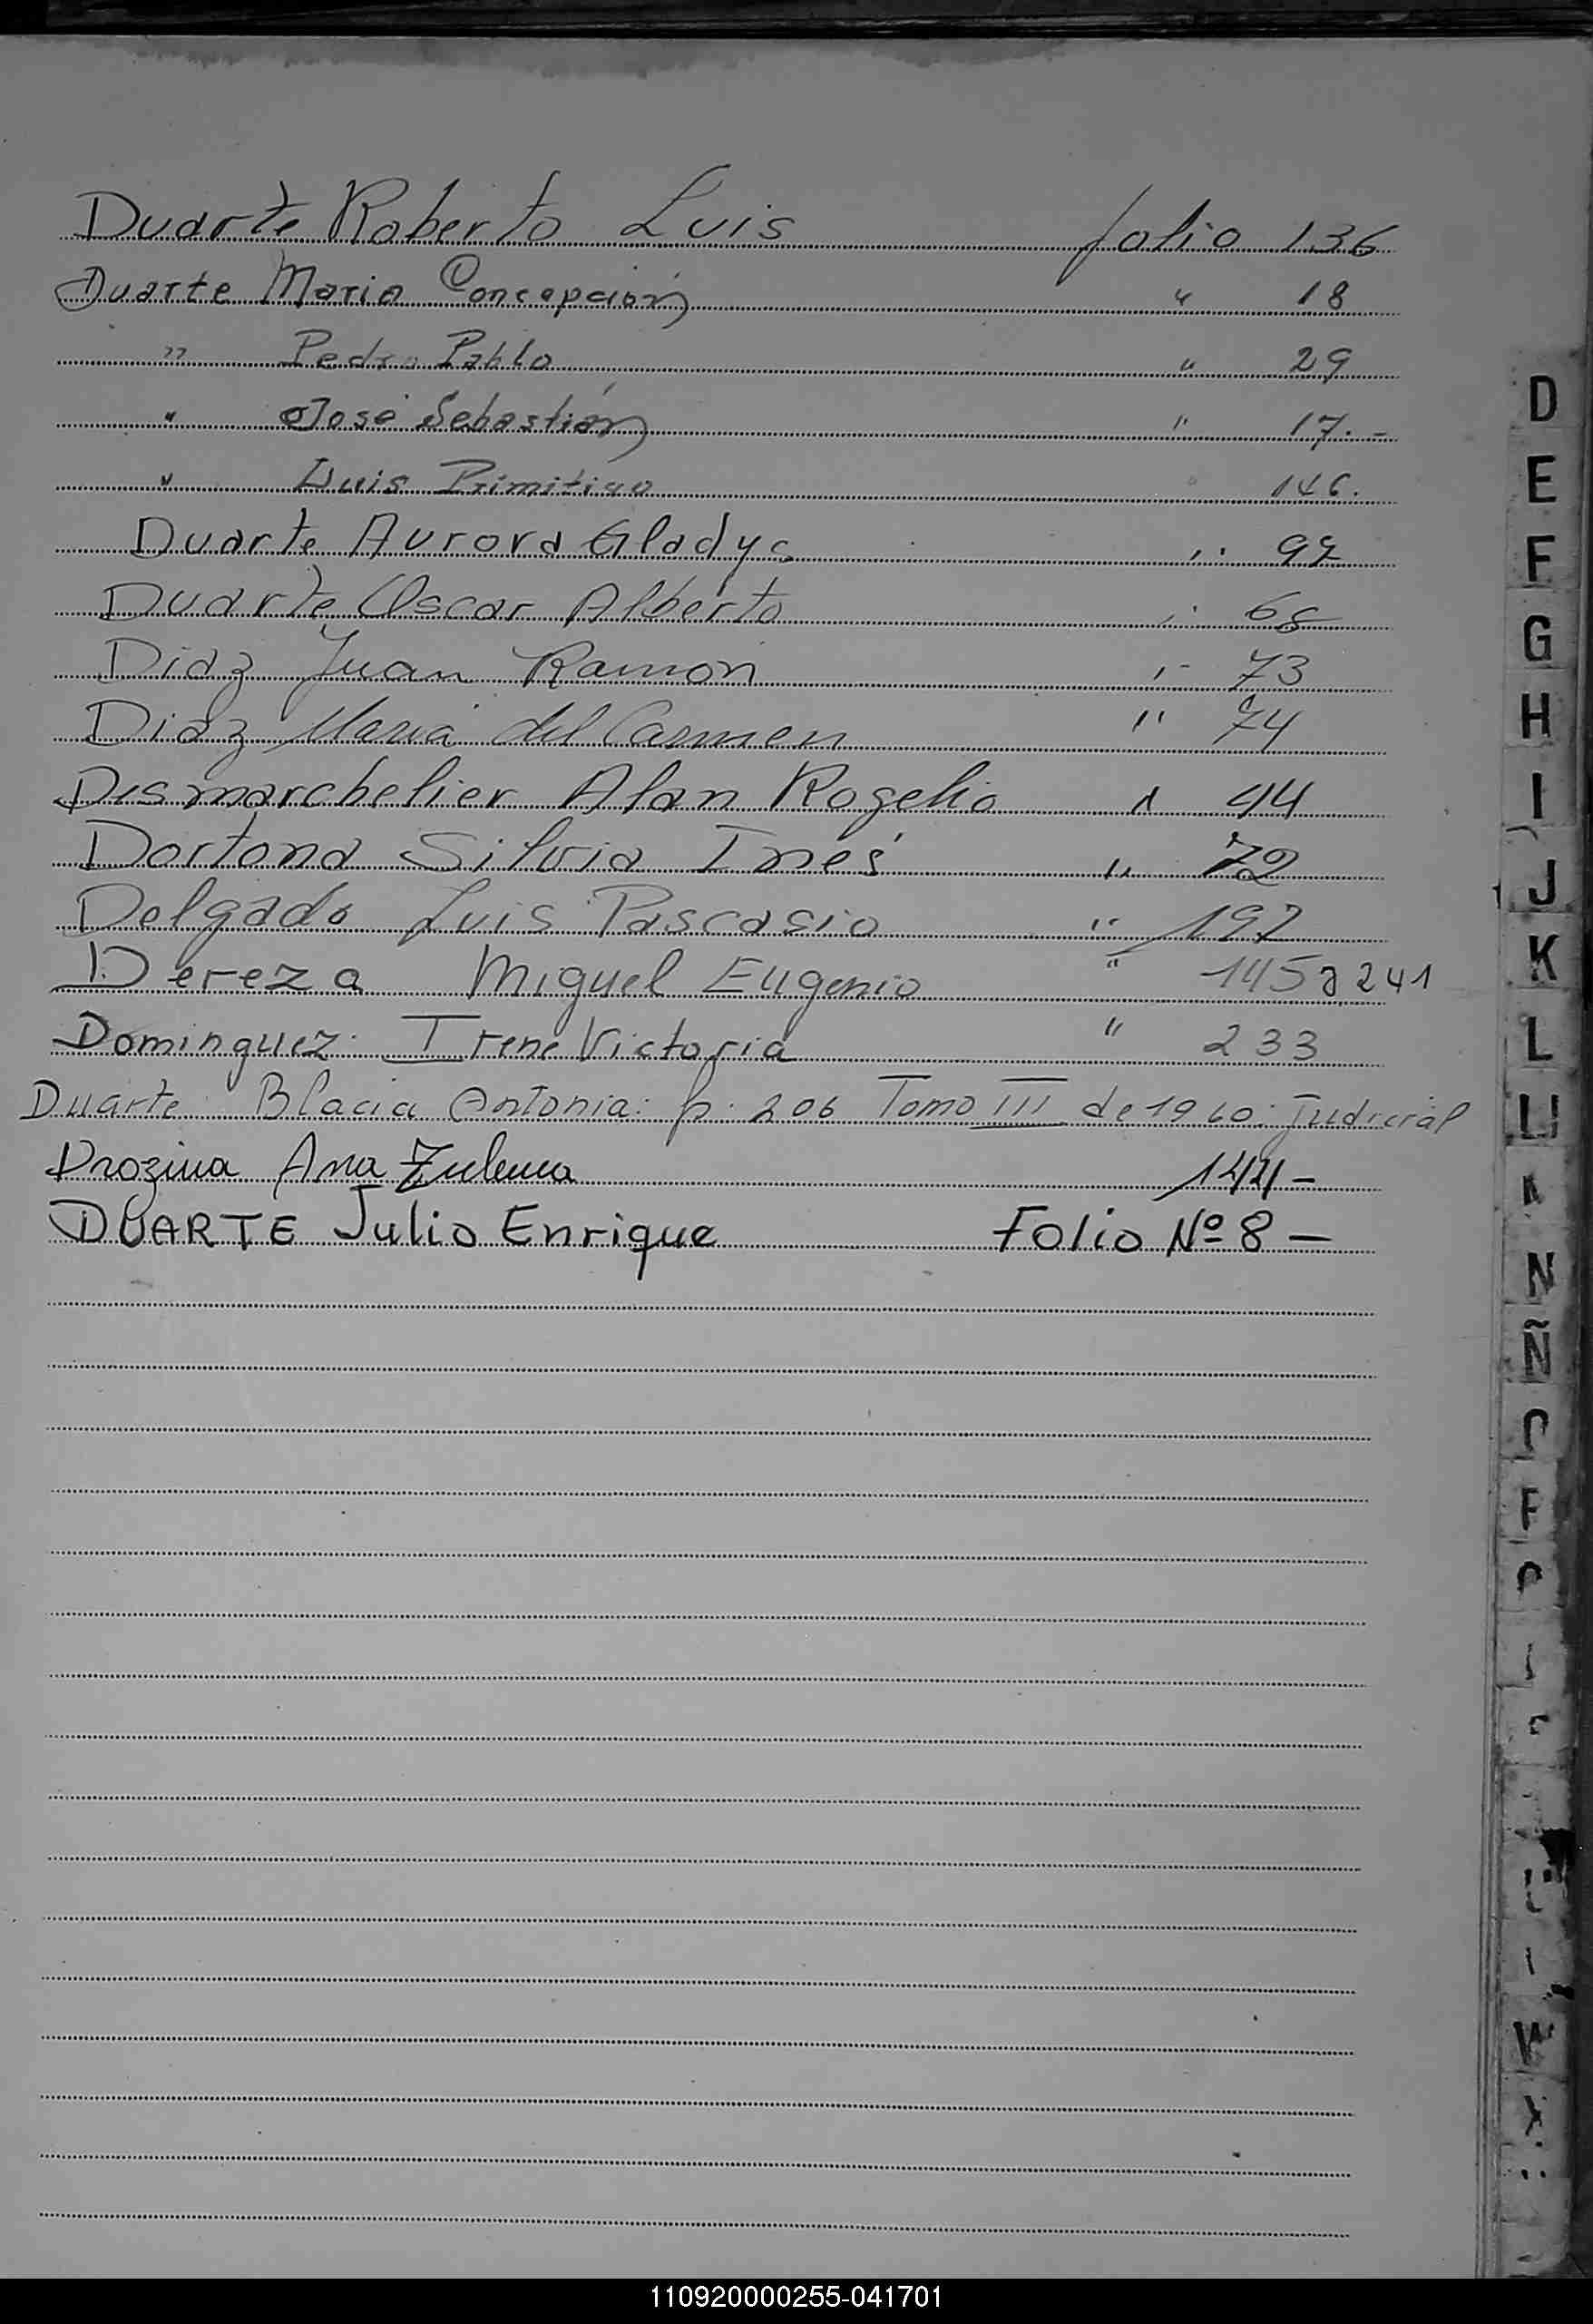 Duarte Roberto Luis folio 136
Duarte Maria Concepción " 18
" Pedro Pablo " 29
" José Sebastián " 17.-
" Luis Primitivo " 146.
Duarte Aurora Gladys "
Duarte Oscar Alberto " 68
Diaz Juan Ramón " 73
Diaz Maria del Carmen " 74
Desmarchelier Alan Rogelio " 44
Dortona Silvia Inés " 72
Delgado Luis Pascasio " 192
Dereza Miguel Eugenio " 145 a 241
Dominguez Irene Victoria " 233
Duarte Blacia Antonia: f. 206 Tomo III de 1960: Judicial
Drozina Ana Zulema 144-
DUARTE Julio Enrique Folio Nº 8 -
D
E
F
G
H
I
J
K
L
LL
N
Ñ
W
110920000255-041701